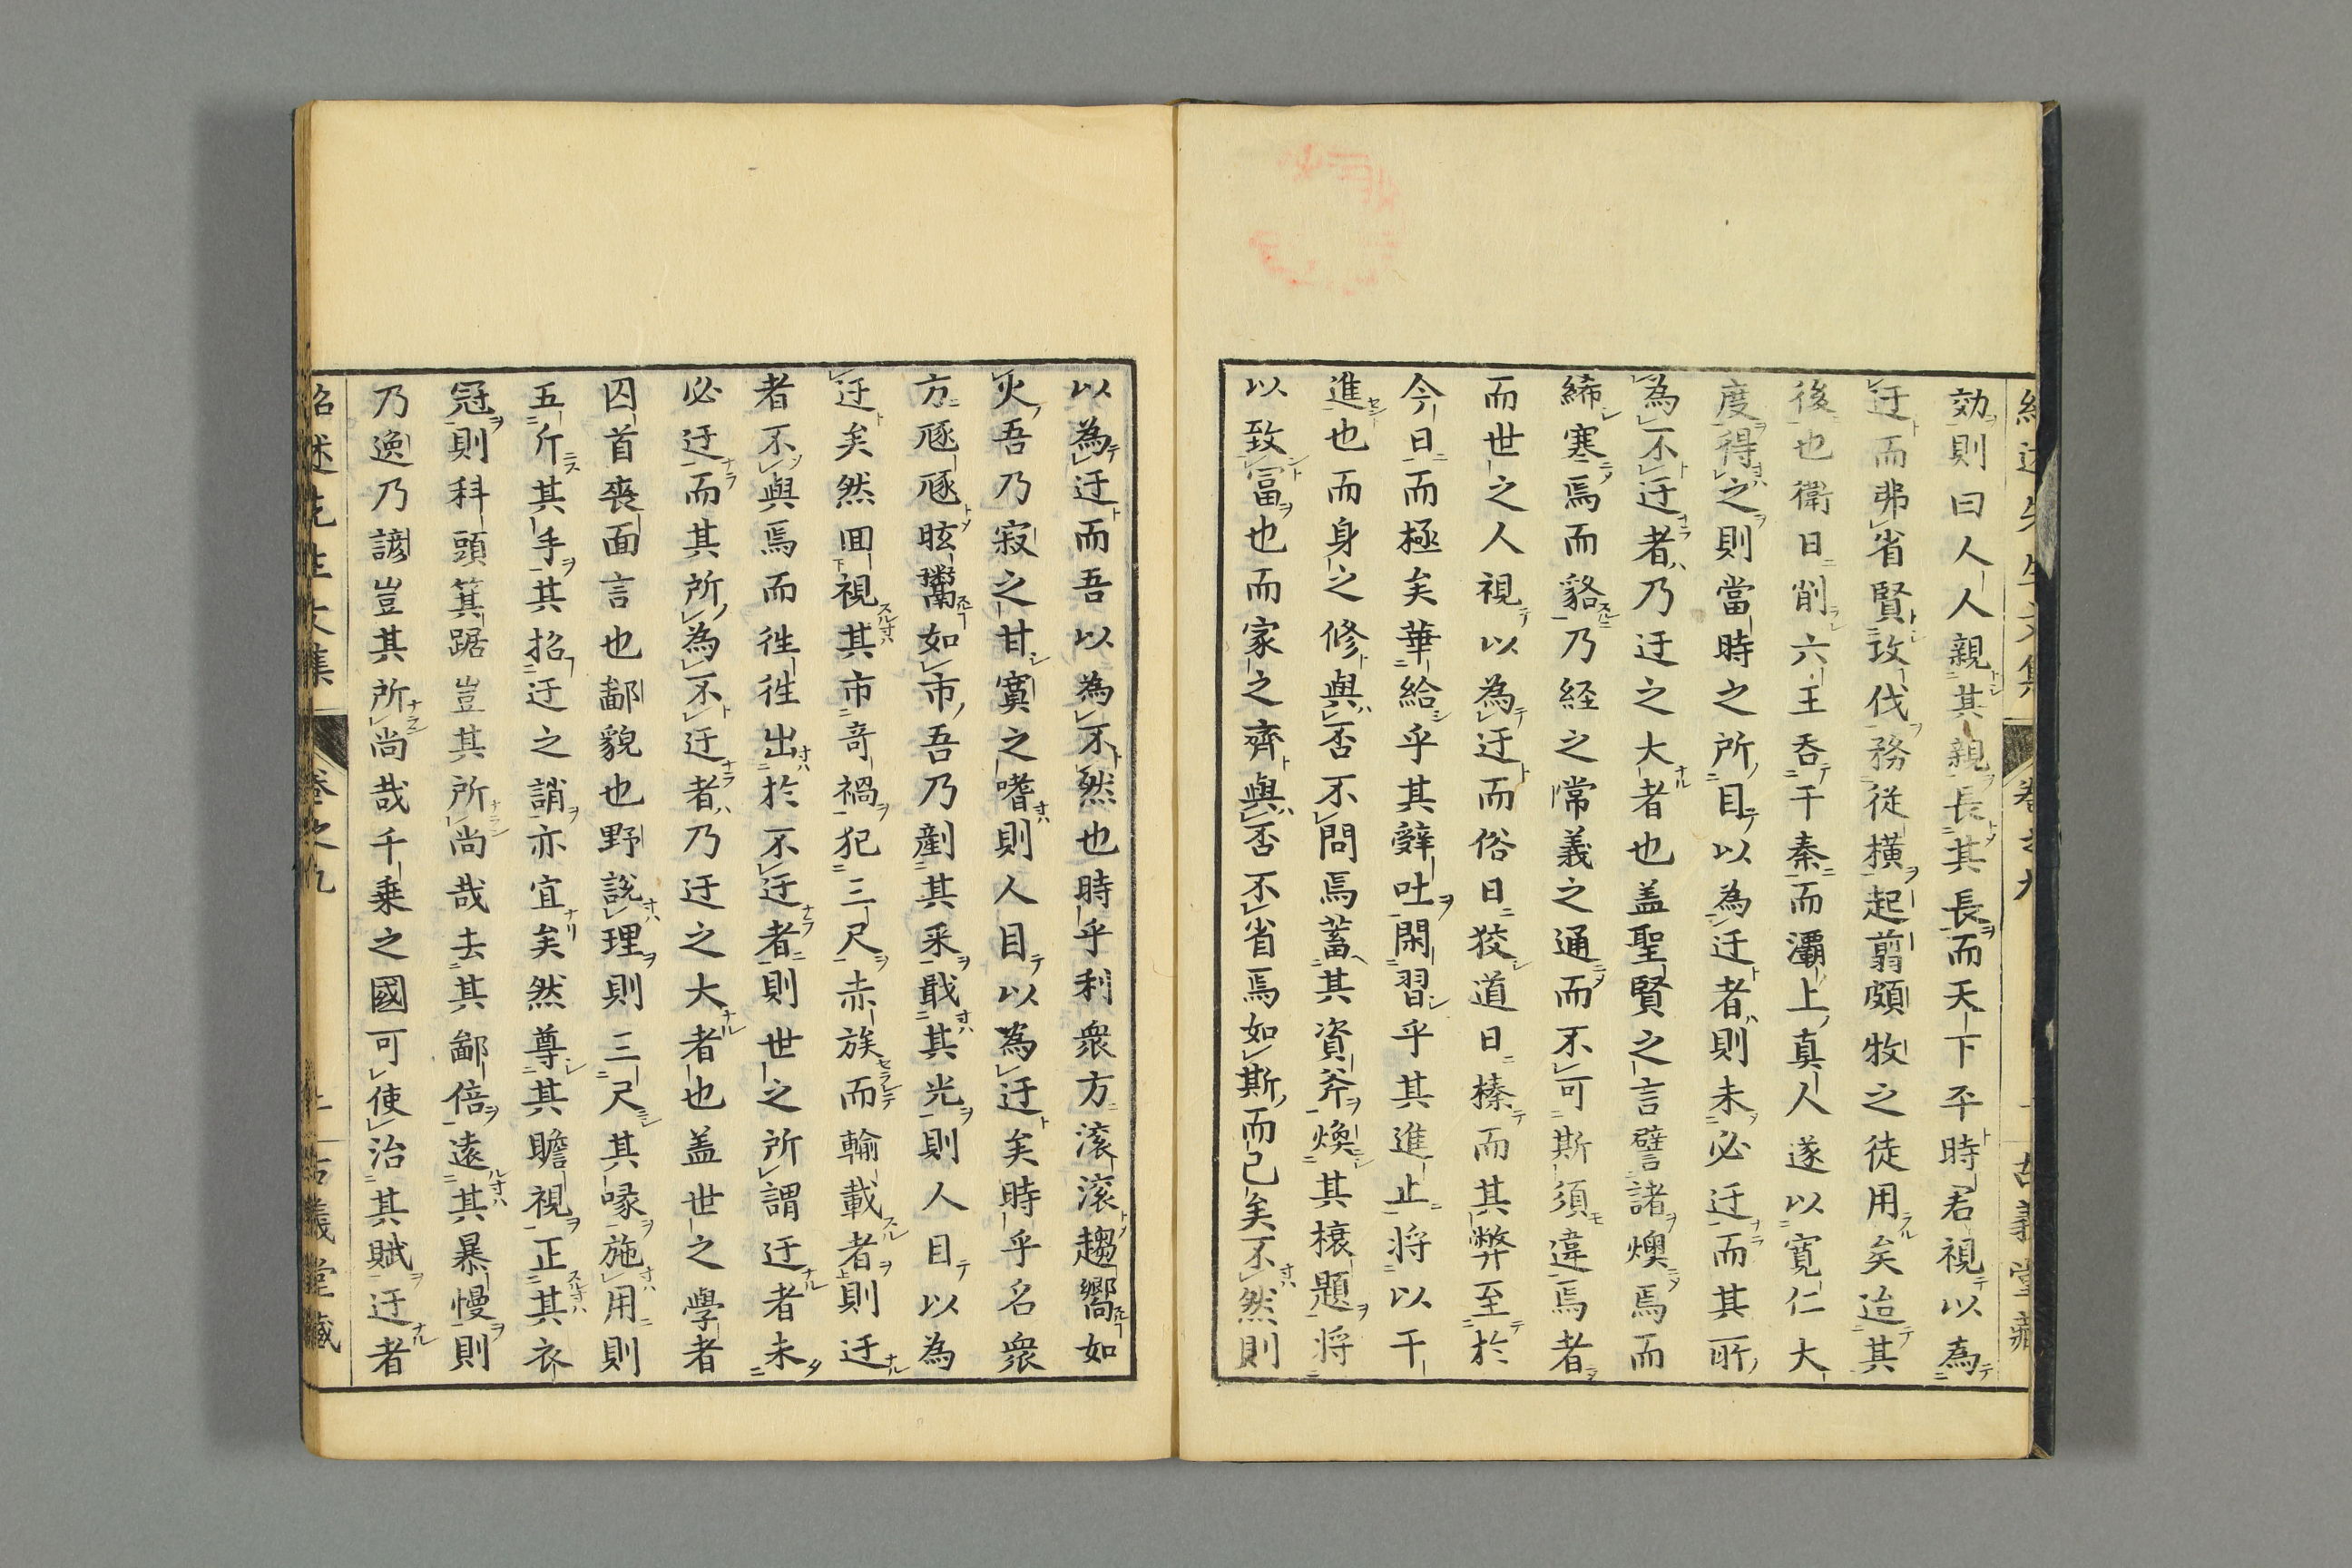 効則曰人人親其親長其長而天下平時君視以為
迂而弗省賢攻伐務從橫起翦頗牧之徒用矣迨其
後也衛日削六王呑于秦而灞上真人遂以寛仁大
度得之則當時之所目以為迂者則未必迂而其所
為不迂者乃迂之大者也盖聖賢之言譬諸燠焉而
絺寒焉而貉乃経之常義之通而不可斯須違焉者
而世之人視以為迂而俗日狡道日榛而其弊至於
今日而極矣華給乎其辭吐閑習乎其進止將以干
進也而身之修與否不問焉蓄其資斧煥其榱題將
以致富也而家之齊與否不省焉如斯而已矣不然則
以為迂而吾以為不然也時乎利衆方滚滚趨嚮如
火吾乃寂之甘寞之嗜則人目以為迂矣時乎名衆
方豗豗眩鬻如市吾乃剷其采戢其光則人目以為
迂矣然回視其市竒禍犯三尺赤族而輸載者則迂
者不與焉而徃徃出於不迂者則世之所謂迂者未
必迂而其所為不迂者乃迂之大者也盖世之學者
囚首喪面言也鄙貌也野說理則三尺其喙施用則
五斤其手其招迂之誚亦宜矣然尊其瞻視正其衣
冠則科頭箕踞豈其所尚哉去其鄙倍遠其暴慢則
乃逸乃諺豈其所尚哉千乗之國可使治其賦迂者
紹述先生文集 卷之九 古義堂藏